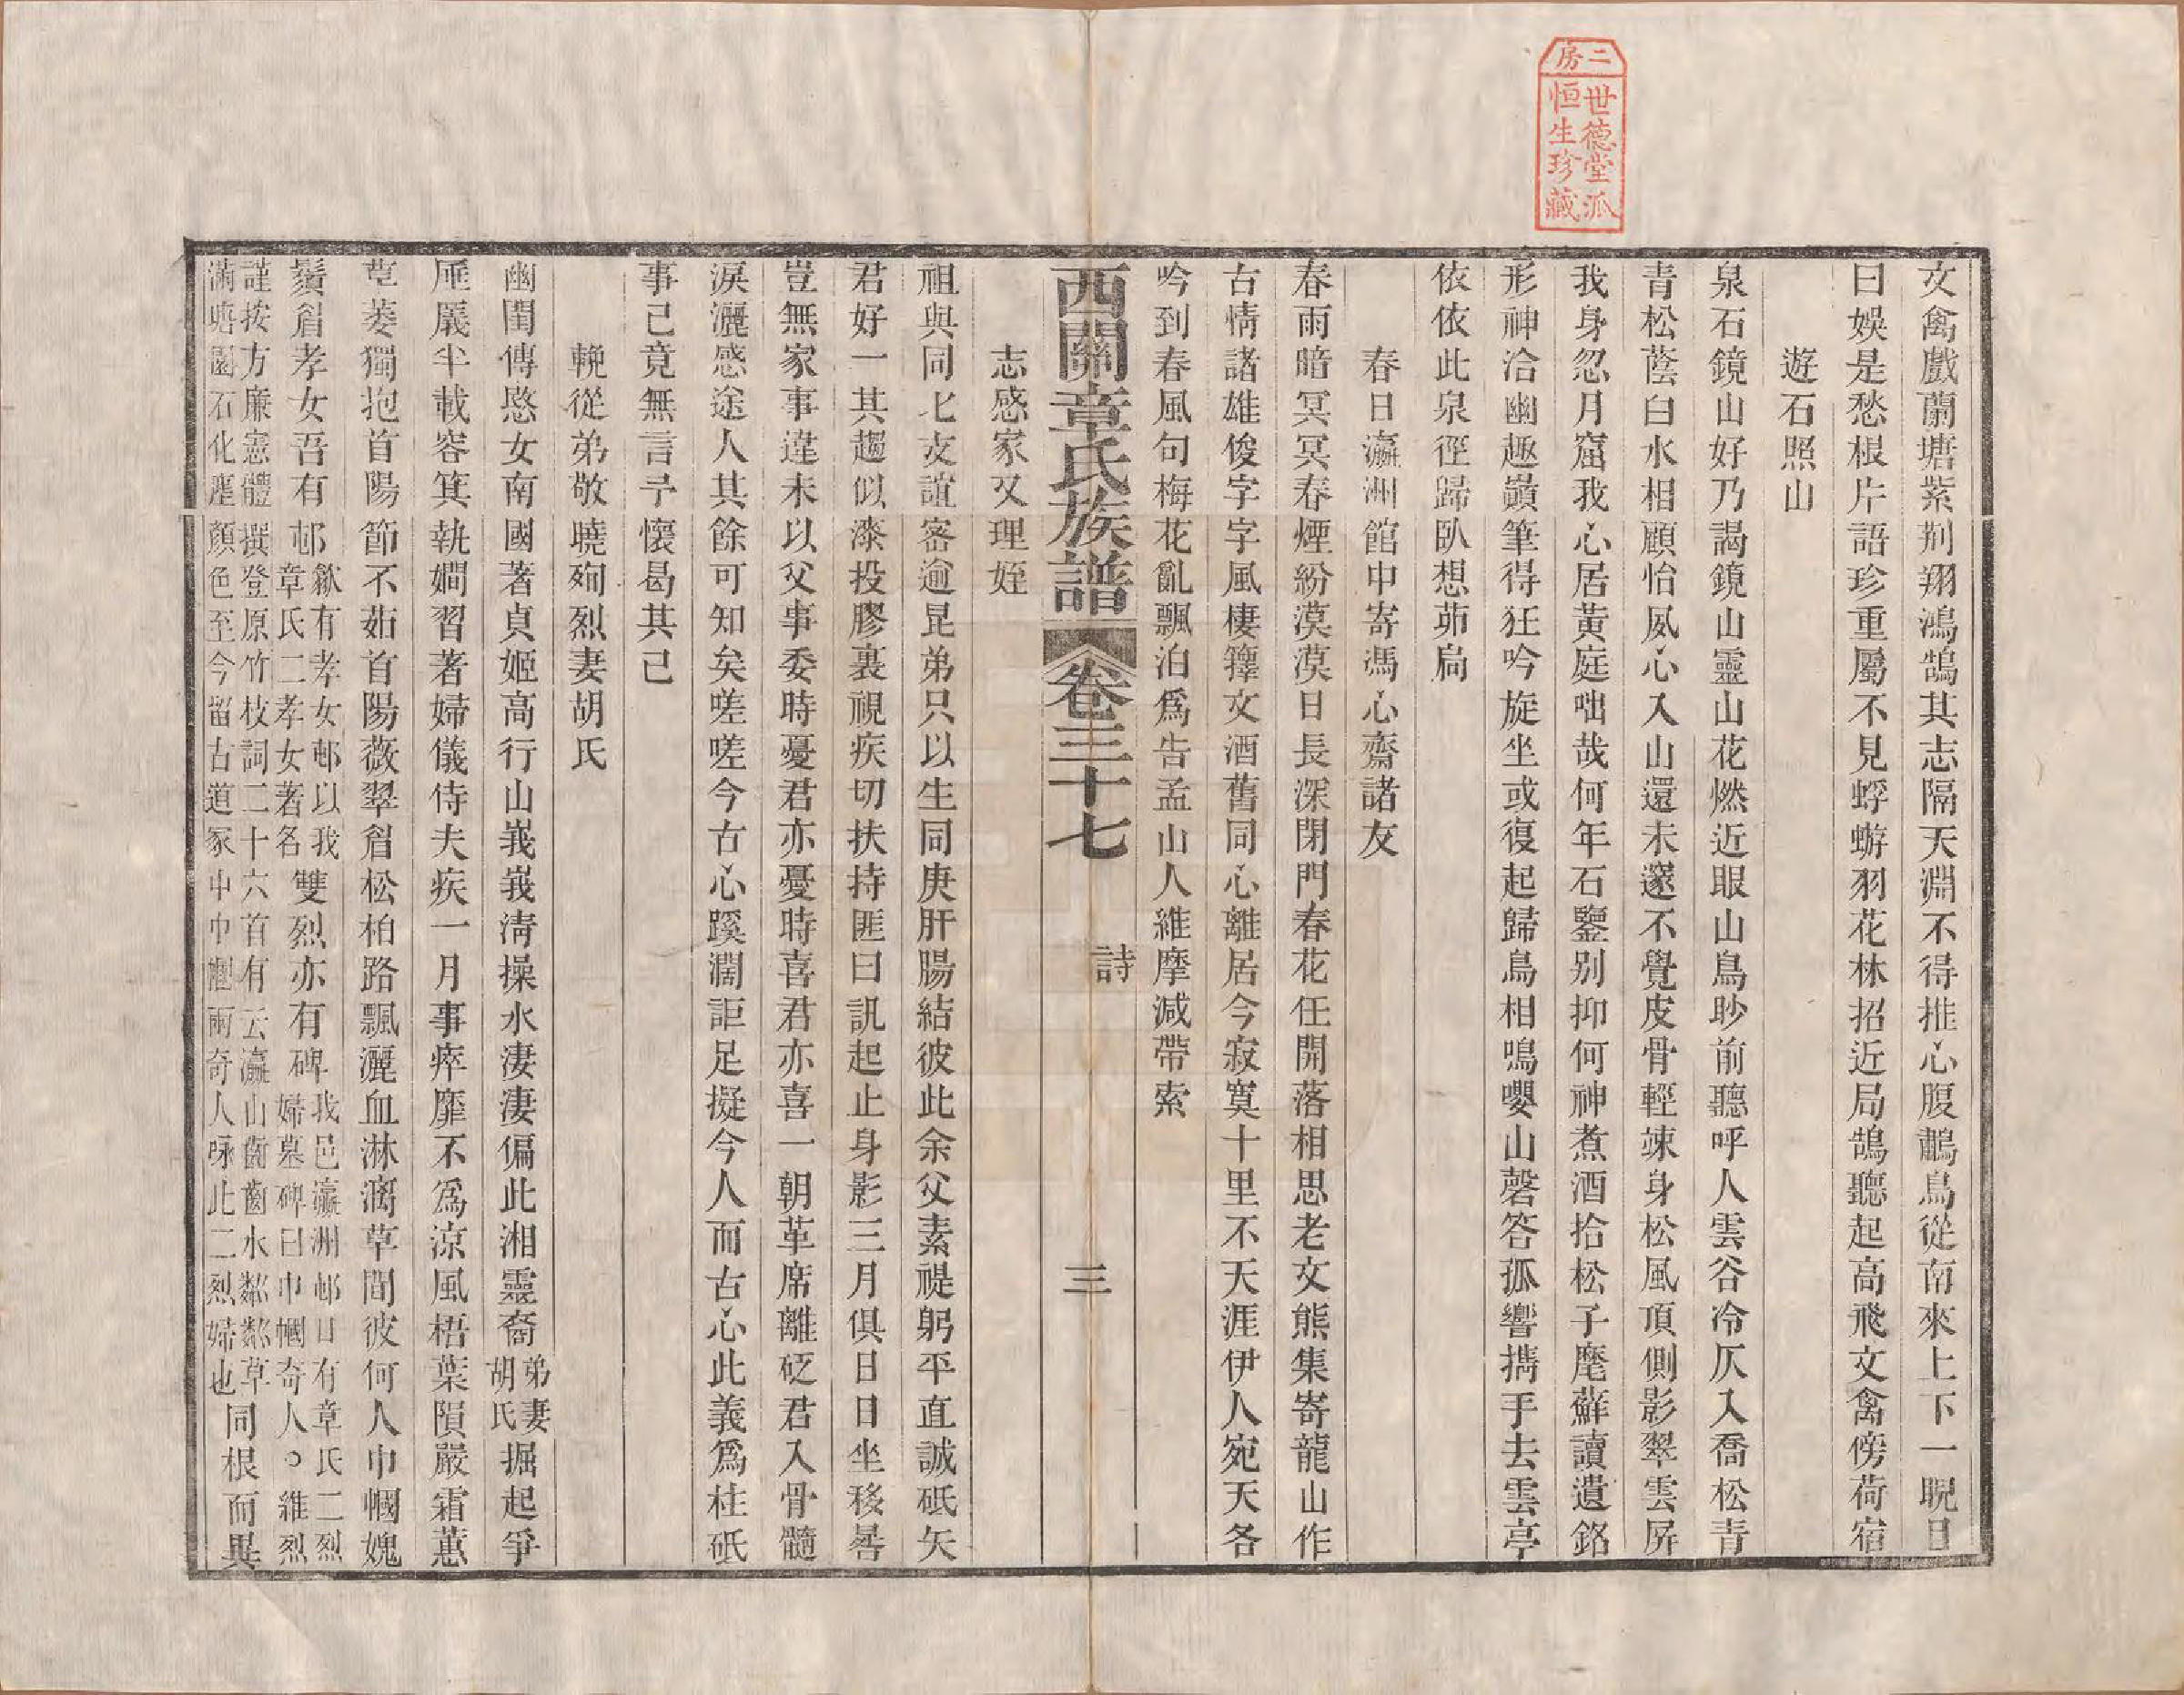 二房
世德堂派
恒生珍藏
文禽戲蘭塘紫荊翔鴻鵠其志隔天淵不得推心腹鷫鳥從南來上下一睨目
曰娛是愁根片語珍重屬不見蜉蝣羽花林招近局鵠聽起高飛文禽傍荷宿
遊石照山
泉石鏡山好乃謁鏡山靈山花燃近眼山鳥眇前聽呼人雲谷冷仄入喬松青
青松蔭白水相顧怡風心入山還未邃不覺皮骨輕竦身松風頂側影翠雲屏
我身忽月窟我心居黃庭咄哉何年石鑒别抑何神煮酒拾松子麾蘚讀遺銘
形神洽幽趣巔筆得狂吟旋坐或復起歸鳥相鳴嚶山磬答孤響攜手去雲亭
依依此泉徑歸臥想茆扃
春日瀛洲館中寄馮心齋諸友
春雨暗冥冥春煙紛漠漠日長深閉門春花任開落相思老文熊集寄龍山作
古情諸雄俊字字風棲籜文酒舊同心離居今寂寞十里不天涯伊人宛天各
吟到春風句梅花亂飄泊爲告孟山人維摩減帶索
西關章氏族譜 卷三十七 詩 三
志感家又理姪
祖與同七支誼密逾昆弟只以生同庚肝腸結彼此余父素禔躬平直誠砥矢
君好一其趨似漆投膠裏視疾切扶持匪曰訊起止身影三月俱日日坐移晷
豈無家事違未以父事委時憂君亦憂時喜君亦喜一朝革席離砭君入骨髓
淚灑感途人其餘可知矣嗟嗟今古心蹊濶詎足擬今人而古心此義爲柱砥
事已竟無言予懷曷其已
輓從弟敬曉殉烈妻胡氏
幽閨傳愍女南國著貞姬高行山峩峩淸操水淒淒偏此湘靈裔弟妻胡氏掘起爭
厜㕒半載容箕執嫺習著婦儀侍夫疾一月事瘁靡不爲涼風梧葉隕嚴霜蕙
草萎獨抱首陽節不茹首陽薇翠眉松柏路飄灑血淋漓草間彼何人巾幗媿
鬚眉孝女吾有邨歙有孝女邨以我章氏二孝女著名雙烈亦有碑我邑瀛洲邨日有章氏二烈婦墓碑曰巾幗奇人。維烈
謹按方廉憲體撰登原竹枝詞二十六首有云瀛山齒齒水粼粼草
滿塘園石化塵顏色至今留古道冢中巾幗兩奇人咏此二烈婦也同根而異